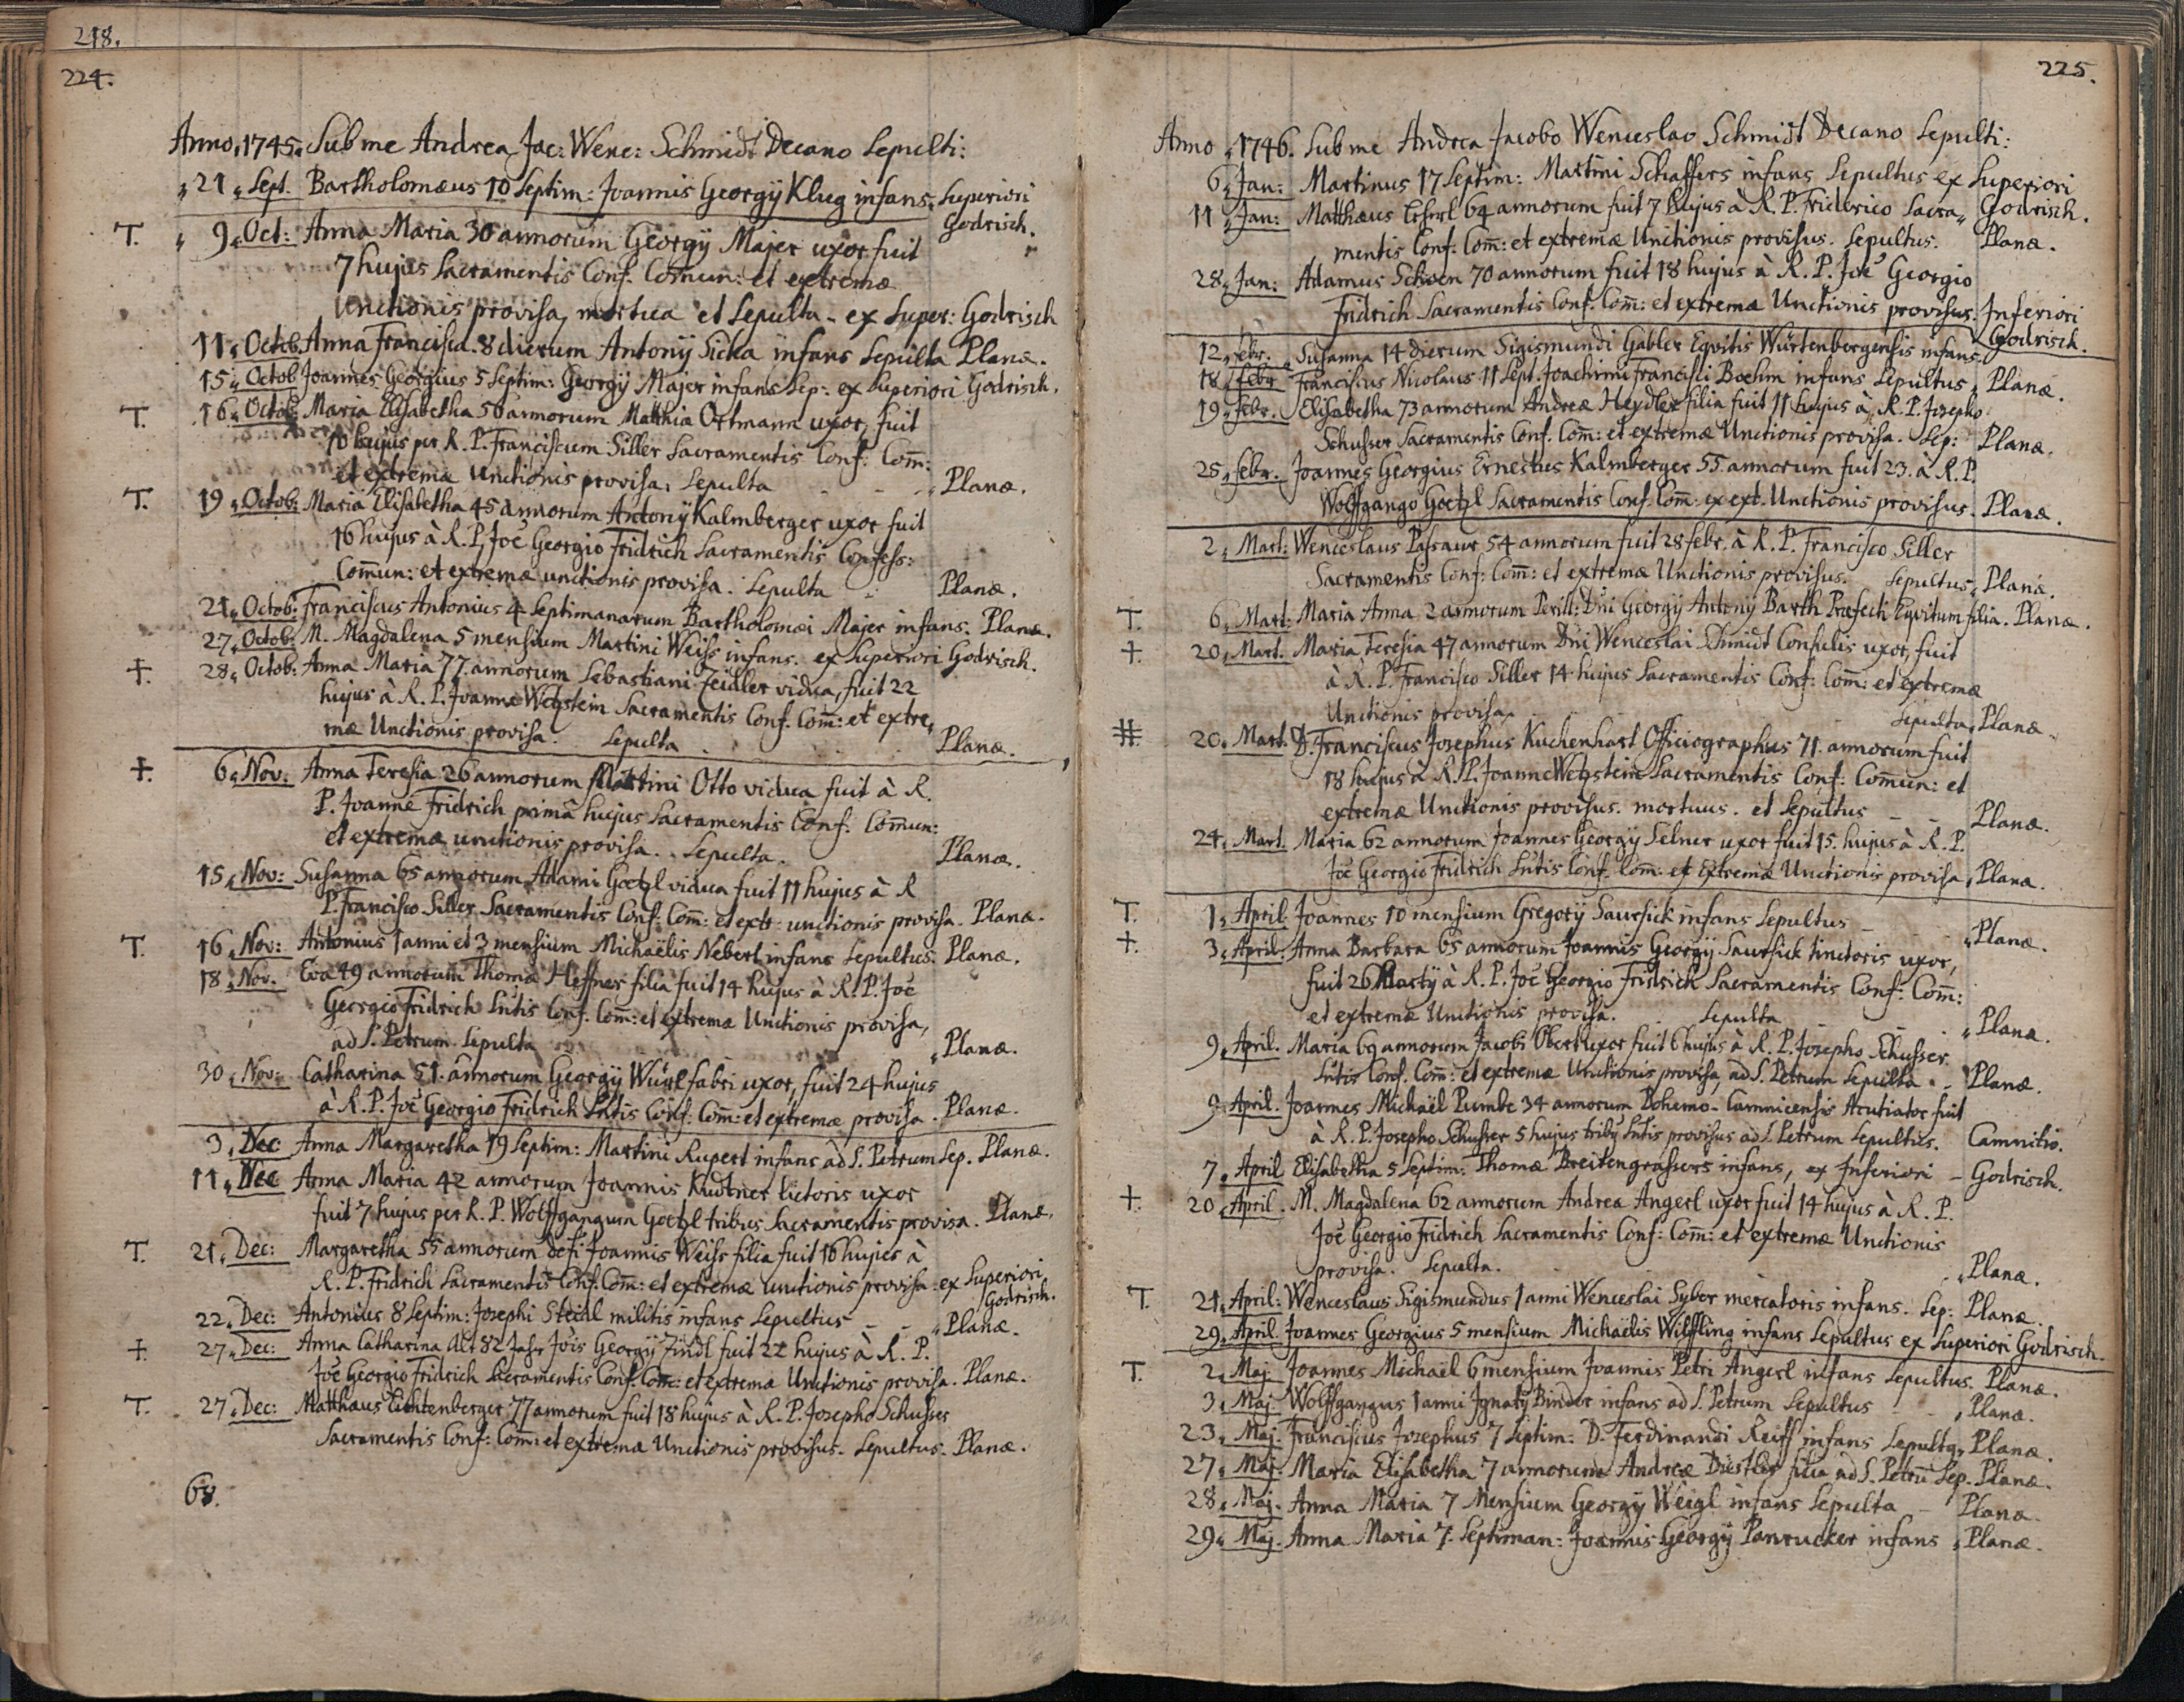 218.
224.
Anno 1745. Sub me Andrea Jac: Wenc: Schmidt Decano Sepulti:
21 Sept. Bartholomæus 10 Septim: Joannis Georgÿ Klug infans. Superiori
Godrisch.
T. 9 Oct: Anna Maria 30 annorum Georgÿ Majer uxor fuit
7 hujus Sacramentis Conf. Com̅un: et extremæ
Unctionis provisa, mortua et Sepulta - ex Super: Godrisch
11 Octob. Anna Francisca 8 dierum Antonÿ Sicka infans Sepulta Planæ.
15 Octob Joannes Georgius 5 Septim: Georgÿ Majer infans Sep: ex Superiori Godrisch.
T. 16 Octob: Maria Elisabetha 56 annorum Matthiæ Ortmann uxor, fuit
10 hujus per R. P. Franciscum Siller Sacramentis Conf: Com̅:
et extremæ Unctionis provisa. Sepulta - - - Planæ.
T. 19 Octob: Maria Elisabetha 45 annorum Antonÿ Kalmberger uxor fuit
16 hujus à R. P. Joe Georgio Fridrich Sacramentis Confess:
Com̅un: et extremæ unctionis provisa. Sepulta Planæ.
21. Octob: Franciscus Antonius 4 Septimanarum Bartholomæi Majer infans. Planæ.
27. Octob: M. Magdalena 5 mensium Martini Weiss infans. ex Superiori Godrisch.
+. 28. Octob: Anna Maria 77. annorum Sebastiani Zeidler vidua, fuit 22
hujus à R. P. Joanne Wetzstein Sacramentis Conf. Com̅: et extre,
mæ Unctionis provisa. Sepulta . . . . Planæ.
+. 6. Nov: Anna Teresia 26 annorum Martini Otto vidua fuit à R.
P. Joanne Fridrich primâ hujus Sacramentis Conf. Com̅un:
et extremæ unctionis provisa. Sepulta. Planæ.
15. Nov: Susanna 65 annorum Adami Goetzl vidua fuit 11 hujus à R
P. Francisco Siller Sacramentis Conf: Com̅: et extr: unctionis provisa. Planæ.
T. 16. Nov: Antonius 1 anni et 3 mensium Michaëlis Neberl infans Sepultus. Planæ.
18. Nov. Eva 49 annorum Thomæ Heffner filia fuit 14 hujus à R. P. Joe
Georgio Fridrich Sntis Conf. Com̅: et extremæ Unctionis provisa,
ad S. Petrum Sepulta Planæ.
30. Nov: Catharina 51. annorum Georgÿ Würl fabri uxor, fuit 24 hujus
à R. P. Joe Georgio Fridrich Sntis Conf: Com̅: et extremæ provisa. Planæ.
3. Dec Anna Margaretha 19 Septim: Martini Rupert infans ad S. Petrum Sep. Planæ.
11. Dec Anna Maria 42 annorum Joannis Kudtner lictoris uxor
fuit 7 hujus per R. P. Wolffgangum Goetzl tribus Sacramentis provisa. Planæ.
T. 21. Dec: Margaretha 55 annorum defi Joannis Weiss filia fuit 16 hujus à
R. P. Fridrich Sacramentis Conf. Com̅: et extremæ unctionis provisa: ex Superiori
Godrisch.
22. Dec: Antonius 8 Septim: Josephi Steidl militis infans Sepultus - - Planæ.
+. 27. Dec: Anna Catharina Alt 82 Jahr Jois Georgÿ Zindl fuit 22 hujus à R. P.
Joe Georgio Fridrich Sacramentis Conf. Com̅: et extremæ Unctionis provisa. Planæ.
T. 27. Dec: Matthæus Lichtenberger 77 annorum fuit 18 hujus à R. P. Josepho Schusser
Sacramentis Conf: Com̅: et extremæ Unctionis provisus. Sepultus. Planæ.
68.
225.
Anno 1746. Sub me Andrea Jacobo Wenceslao Schmidt Decano Sepulti:
6. Jan: Martinus 17 Septim: Martini Schaffers infans Sepultus ex Superiori
Godrisch.
11 Jan: Matthæus 69 annorum fuit 7 hujus à R. P. Friderico Sacra,
mentis Conf: Com̅: et extremæ Unctionis provisus. Sepultus. Planæ.
28. Jan: Adamus Schoen 70 annorum fuit 18 hujus à R. P. Joe Georgio
Fridrich Sacramentis Conf: Com̅: et extremæ Unctionis provisus. Inferiori
Godrisch.
12. Febr. Susanna 14 dierum Sigismundi Gabler Eqvitis Würtenbergensis infans.
18 Febr Franciscus Nicolaus 11 Sept. Joachimi Francisci Boehm infans Sepultus. Planæ.
19. Febr. Elisabetha 73 annorum Andreæ Heydler filia fuit 11 hujus à R. P. Josepho
Schusser Sacramentis Conf. Com̅: et extremæ Unctionis provisa. Sep: Planæ.
25. Febr. Joannes Georgius Ernestus Kalmberger 55 annorum fuit 23. à R. P.
Wolffgango Goetzl Sacramentis Conf. Com̅: ex ext. Unctionis provisus. Planæ.
2. Mart: Wenceslaus Passaur 54 annorum fuit 28 febr. à R. P. Francisco Siller
Sacramentis Conf: Com̅: et extremæ Unctionis provisus. Sepultus. Planæ.
T. 6. Mart: Maria Anna 2 annorum Perill: Dni Georgÿ Antonÿ Barth Præfecti Eqvitum filia. Planæ.
+. 20. Mart. Maria Teresia 47 annorum Dni Wenceslai Schmidt Consulis uxor, fuit
à R. P. Francisco Siller 14 hujus Sacramentis Conf: Com̅: et extremæ
Unctionis provisa. Sepulta. Planæ.
20. Mart. D. Franciscus Josephus Kuchenhart Officiographus 71. annorum fuit
18 hujus à R. P. Joanne Wetzstein Sacramentis Conf: Com̅un: et
extremæ Unctionis provisus. mortuus. et Sepultus - - Planæ.
24. Mart. Maria 62 annorum Joannes Georgÿ Selner uxor fuit 15. hujus à R. P.
Joe Georgio Fridrich Sntis Conf. Com̅: et Extremæ Unctionis provisa. Planæ.
T. 1. April. Joannes 10 mensium Gregorÿ Saursick infans Sepultus - - Planæ.
+. 3. April. Anna Barbara 65 annorum Joannis Georgÿ Saursick tinctoris uxor,
fuit 26 Martÿ à R. P. Joe Georgio Fridrich Sacramentis Conf: Com̅:
et extremæ Unctionis provisa. Sepulta - - Planæ.
9. April. Maria 69 annorum Jacobi Oberl uxor fuit 6 hujus à R. P. Josepho Schusser
Sntis Conf. Com̅: et extremæ Unctionis provisa, ad S. Petrum Sepulta. - Planæ.
9. April. Joannes Michaël Pumbe 34 annorum Bohemo-Camnicensis Acutiator fuit
à R. P. Josepho Schusser 5 hujus tribus Sntis provisus ad S. Petrum Sepultus. Camnitio.
7. April Elisabetha 5 Septim: Thomæ Breitengrassers infans, ex Inferiori - Godrisch.
+. 20. April. M. Magdalena 62 annorum Andreæ Angerl uxor fuit 14 hujus à R. P.
Joe Georgio Fridrich Sacramentis Conf: Com̅: et extremæ Unctionis
provisa. Sepulta. Planæ.
T. 21. April: Wenceslaus Sigismundus 1 anni Wenceslai Syber mercatoris infans. Sep: Planæ.
29. April. Joannes Georgius 5 mensium Michaëlis Wilffling infans Sepultus ex Superiori Godrisch.
T. 2. Maj. Joannes Michaël 6 mensium Joannis Petri Angerl infans Sepultus. Planæ.
3. Maj. Wolffgangus 1 anni Ignatÿ Binder infans ad S. Petrum Sepultus Planæ.
23. Maj. Franciscus Josephus 7 Septim: D. Ferdinandi Reiff infans Sepultq. Planæ.
27. Maj. Maria Elisabetha 7 annorum Andreæ Diestler filia ad S. Petrū Sep. Planæ.
28. Maj. Anna Maria 7 Mensium Georgÿ Weigl infans Sepulta - Planæ.
29. Maj. Anna Maria 7. Septiman: Joannis Georgÿ Panrucker infans. Planæ.